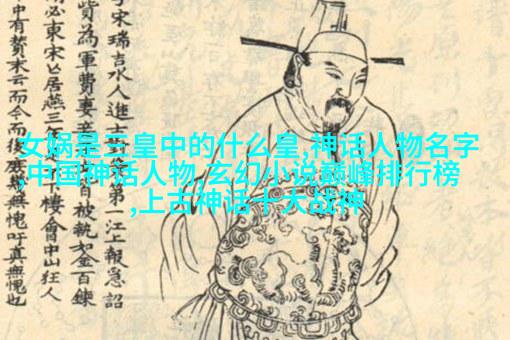 女娲是三皇中的什么皇,神话人物名字
,中国神话人物,玄幻小说巅峰排行榜
,上古神话十大战神
宋瑞吉水人進士對第一江上報急詔
貲為軍費妻被執如金百鍊
必東宋亡居燕三樓會中山狂人
中有贊末云而今而後無愧吁真無愧也